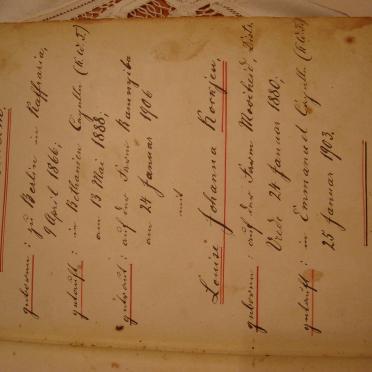 geboren: zu Berlin in Kaffraria,
9 April 1866;
getauft: in Bethanien (K.d.T)
am 13 Mai 1888;
getraut: auf der Farm
am 24 Januar 1906
mit
Louise Johanna
geboren: auf der Farm Mooiheid,
Vrede 24 Januar 1880;
getauft: in Emmanuel (K.d.T)
25 Januar 1903.